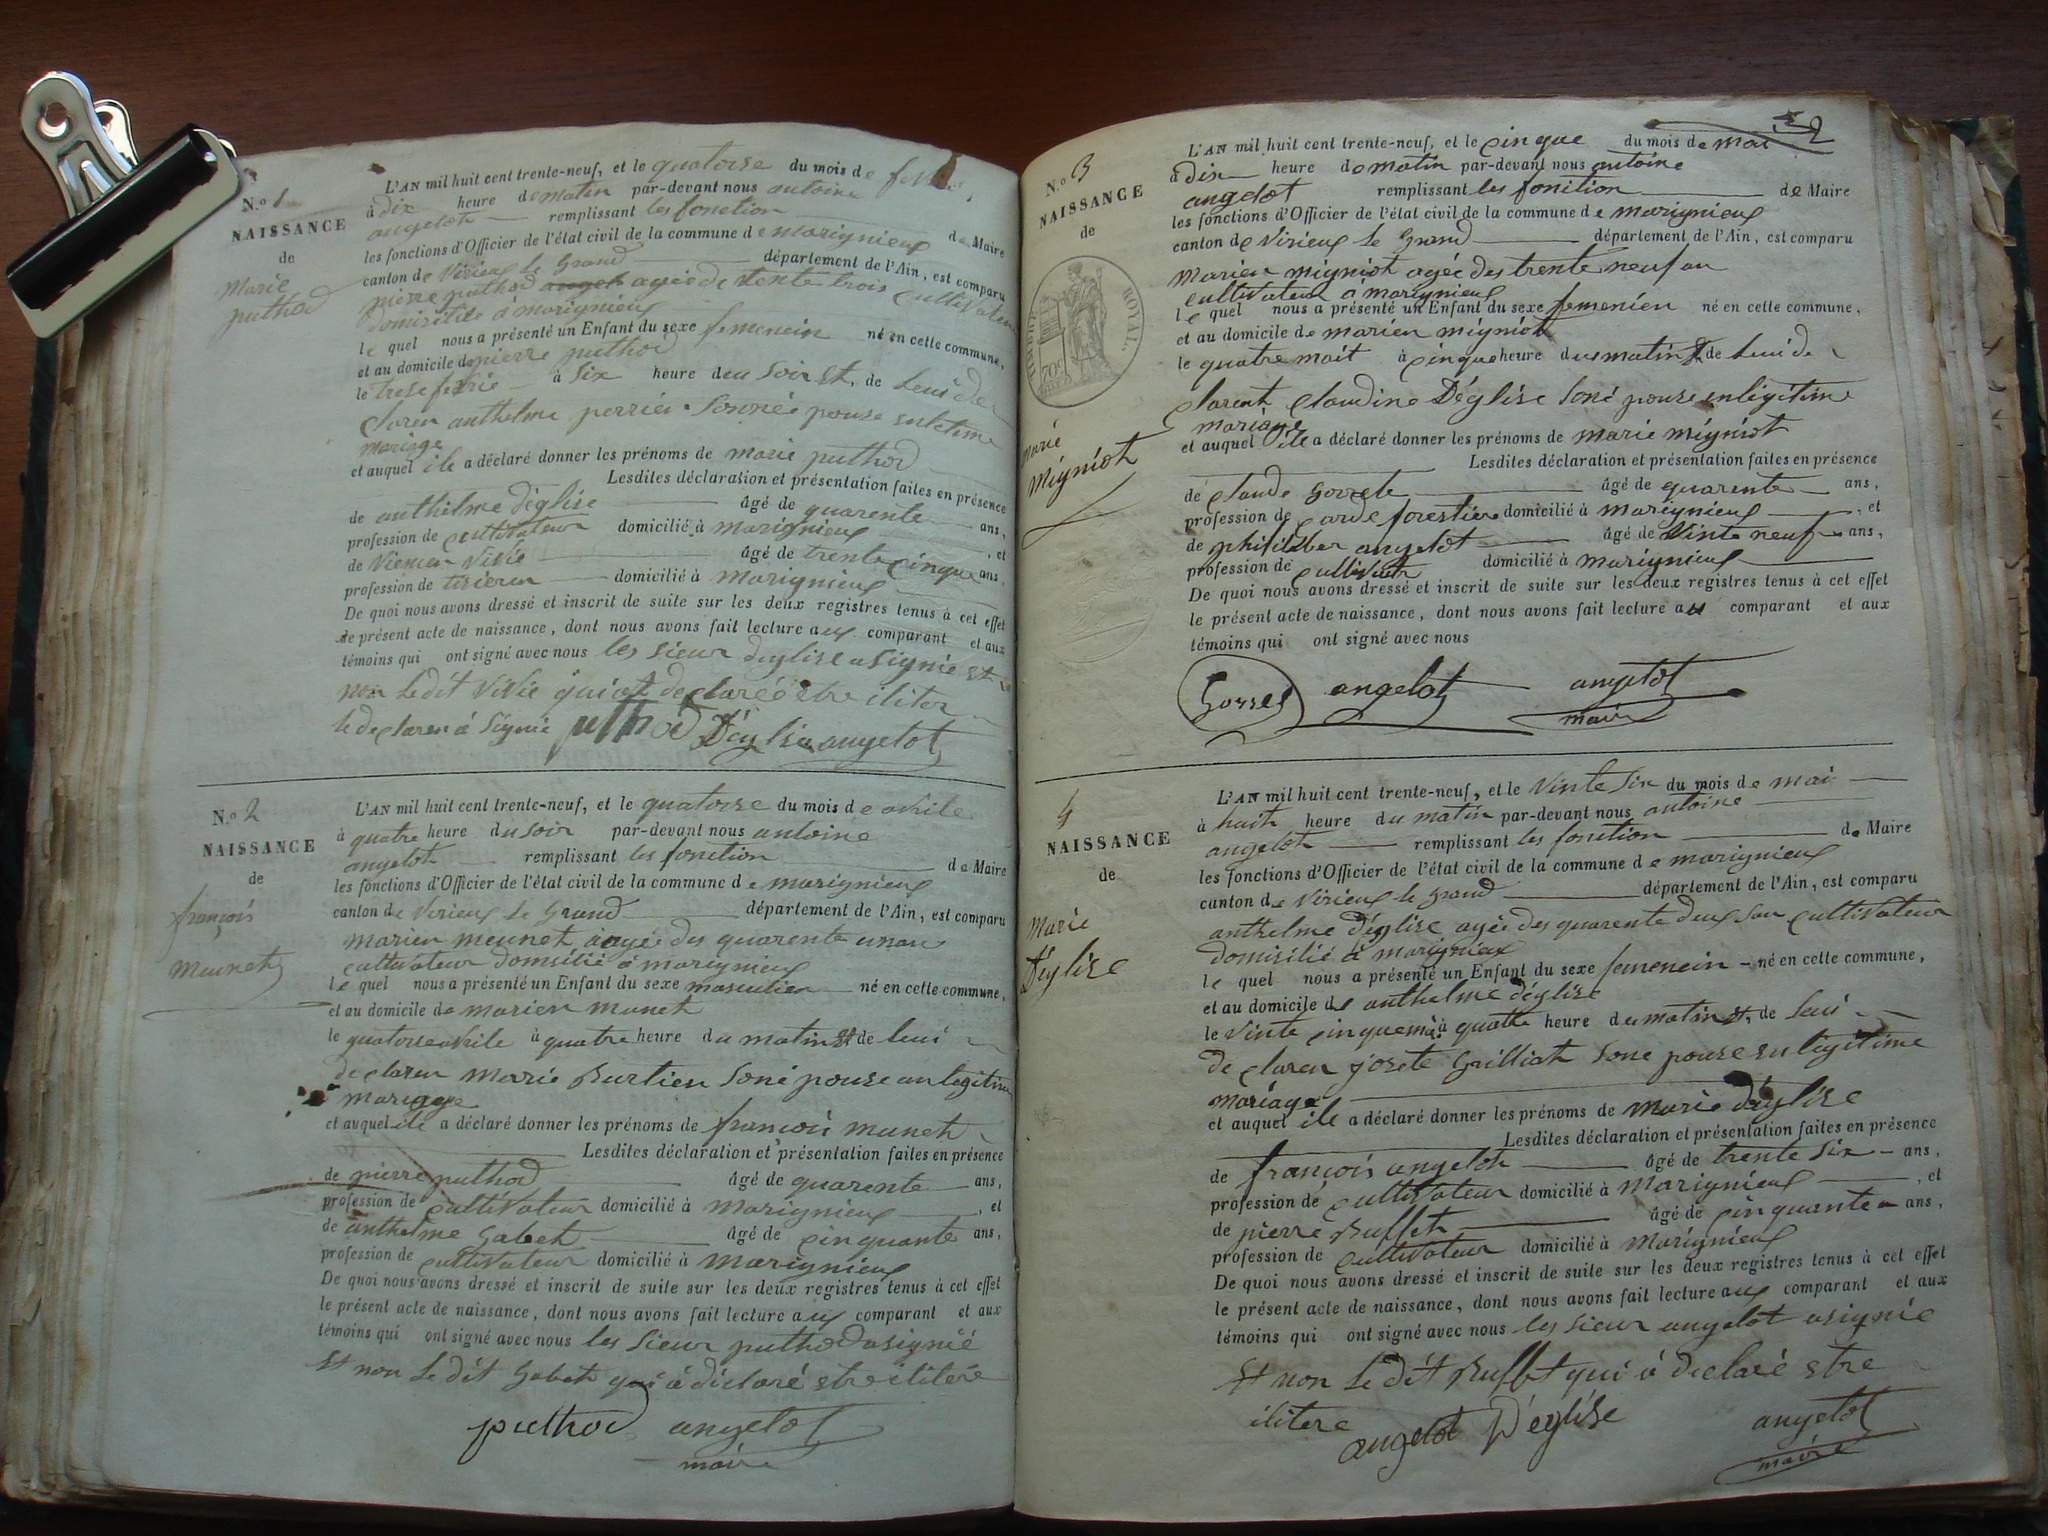 N.o 1
NAISSANCE
de
Marie
puthod
L'AN mil huit cent trente-neuf, et le quatorse du mois de
à dix heure de matin par-devant nous antoine
angelot remplissant les fonction de Maire
les fonctions d'Officier de l'état civil de la commune de marignieux
canton de Virieux le Grand département de l'Ain, est comparu
pierre puthod agée de trente trois cultivateur
domisilié à marignieux
le quel nous a présenté un Enfant du sexe femenein né en cette commune,
et au domicile de pierre puthod
le à six heure du soir et, de lui de
claren anthelme perrier
mariage
et auquel ile a déclaré donner les prénoms de marie puthod
Lesdites déclaration et présentation faites en présence
de anthelme d'église âgé de quarente ans,
profession de cultivateur domicilié à marignieux , et
de Vivie âgé de trente cinque ans,
profession de tisieren domicilié à marignieux
De quoi nous avons dressé et inscrit de suite sur les deux registres tenus à cet effet
le présent acte de naissance, dont nous avons fait lecture aux comparant et aux
témoins qui ont signé avec nous les sieur d'eglise a signié et
non le dit Vivie qui at declaré estre iliter
le declaren à signié puthod D'église angelot
N.o 2
NAISSANCE
de
françois
meunet
L'AN mil huit cent trente-neuf, et le quatorse du mois de avrile
à quatre heure du soir par-devant nous antoine
angelot remplissant les fonction de Maire
les fonctions d'Officier de l'état civil de la commune de marignieux
canton de Virieux le Grand département de l'Ain, est comparu
marien meunet agée des quarente unan
cultivateur domsilié à marignieux
le quel nous a présenté un Enfant du sexe masculien né en cette commune,
et au domicile de marien munet
le quatorse avrile à quatre heure du matin et de lui
de claren marie Burtien soné pouse an legitime
mariage
et auquel ile a déclaré donner les prénoms de françois munet
Lesdites déclaration et présentation faites en présence
de pierre puthod âgé de quarente ans,
profession de cultivateur domicilié à marignieux , et
de anthelme Gabet âgé de cinquante ans,
profession de cultivateur domicilié à marignieux
De quoi nous avons dressé et inscrit de suite sur les deux registres tenus à cet effet
le présent acte de naissance, dont nous avons fait lecture aux comparant et aux
témoins qui ont signé avec nous les sieur puthod asignié
Et non le dit Gabet qui à diclaré estre ilitére
puthod angelot
maire
2
N.o 3
NAISSANCE
de
TIMBRE ROYAL.
70c
marie
migniot
L'AN mil huit cent trente-neuf, et le cinque du mois de mai
à dix heure de matin par-devant nous antoine
angelot remplissant les fonition de Maire
les fonctions d'Officier de l'état civil de la commune de marignieux
canton de Virieux le Grand département de l'Ain, est comparu
marien migniot agée des trente neuf an
cultivateur à marignieux
le quel nous a présenté un Enfant du sexe femenien né en cette commune,
et au domicile de marien migniot
le quatre mait à cinque heure du matin et de lui de
clarent claudine D'église soné pouse enlégitime
mariage
et auquel ile a déclaré donner les prénoms de marie migniot
Lesdites déclaration et présentation faites en présence
de claude âgé de quarente ans,
profession de garde forestier domicilié à marignieux , et
de angelot âgé de Vinte neuf ans,
profession de domicilié à marignieux
De quoi nous avons dressé et inscrit de suite sur les deux registres tenus à cet effet
le présent acte de naissance, dont nous avons fait lecture au comparant et aux
témoins qui ont signé avec nous
angelot angelot
maire
4
NAISSANCE
de
Marie
D'église
L'AN mil huit cent trente-neuf, et le Vinte six du mois de mai
à huit heure du matin par-devant nous antoine
angelot remplissant les fonition de Maire
les fonctions d'Officier de l'état civil de la commune de marignieux
canton de Virieux le Grand département de l'Ain, est comparu
anthelme d'église agée des quarente deux san cultivateur
domisilié à marignieux
le quel nous a présenté un Enfant du sexe femenein né en cette commune,
et au domicile de anthelme d'église
le Vinte cinque mai à quatre heure du matin et, de lui
de claren josete Guilliot soné pouse en legitime
mariage
et auquel ile a déclaré donner les prénoms de marie d'église
Lesdites déclaration et présentation faites en présence
de françois angelot âgé de trente six ans,
profession de cultivateur domicilié à Marignieux , et
de pierre Buffet âgé de cinquante ans,
profession de cultivateur domicilié à marignieux
De quoi nous avons dressé et inscrit de suite sur les deux registres tenus à cet effet
le présent acte de naissance, dont nous avons fait lecture aux comparant et aux
témoins qui ont signé avec nous les sieur angelot asignié
Et non le dit Buffet qui à declaré stre
ilitere angelot D'église angelot
maire